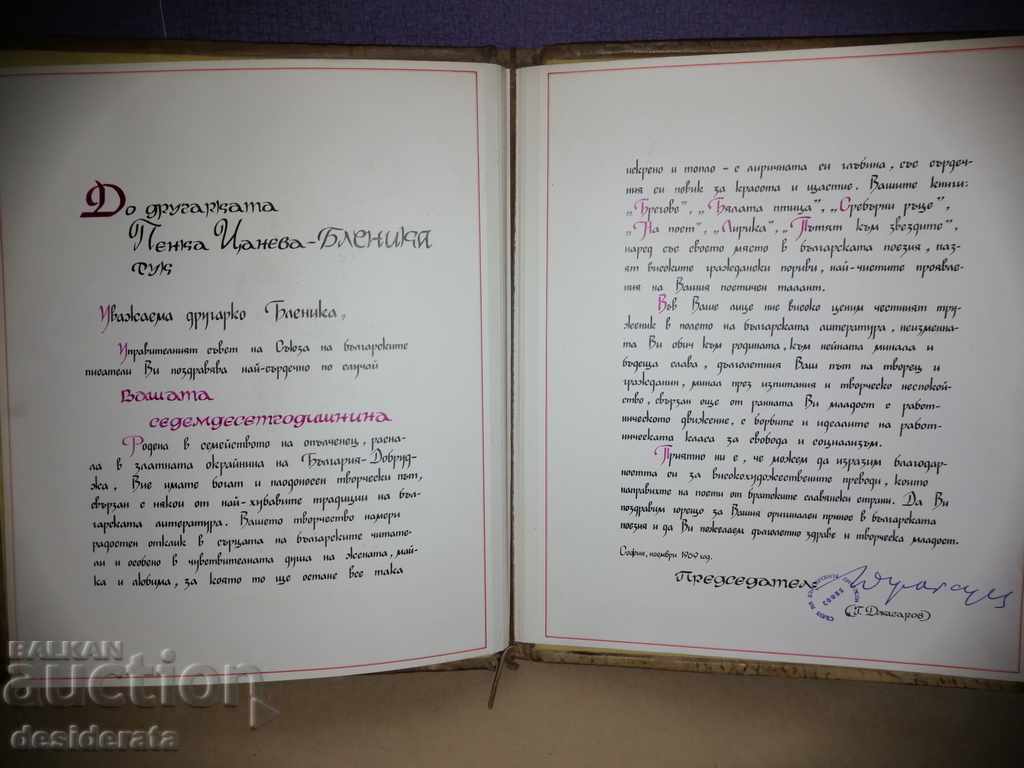 До другарката
Пенка Цанева-Бленика
тук
Уважаема другарко Бленика,
Управителният съвет на Съюза на българските
писатели Ви поздравява най-сърдечно по случай
Вашата
седемдесетгодишнина
Родена в семейството на опълченец, расна-
ла в златната окрайнина на България-Добруд-
жа, Вие имате богат и плодоносен творчески път,
свързан с някои от най-хубавите традиции на бъл-
гарската литература. Вашето творчество намери
радостен отклик в сърцата на българските читате-
ли и особено в чувствителната душа на жената, май-
ка и любима, за която то ще остане все така
искрено и топло – с лиричната си глъбина, със сърдеч-
ния си повик за красота и щастие. Вашите книги:
„Брегове", „Бялата птица", „Сребърни ръце",
„На поет", „Лирика", „Пътят към звездите",
наред със своето място в българската поезия, паз-
ят високите граждански пориви, най-чистите проявле-
ния на Вашия поетичен талант.
Във Ваше лице ние високо ценим честният тру-
женик в полето на българската литература, неизменна-
та Ви обич към родината, към нейната минала и
бъдеща слава, дълголетния Ваш път на творец и
гражданин, минал през изпитания и творческо неспокой-
ство, свързан още от ранната Ви младост с работ-
ническото движение, с борбите и идеалите на работ-
ническата класа за свобода и социализъм.
Приятно ни е, че можем да изразим благодар-
ността си за високохудожествените преводи, които
направихте на поети от братските славянски страни. Да Ви
поздравим горещо за Вашия оригинален принос в българската
поезия и да Ви пожелаем дълголетно здраве и творческа младост.
София, ноември 1969 год.
Председател:
(Г. Джагаров)
BALKAN
auction
desiderata